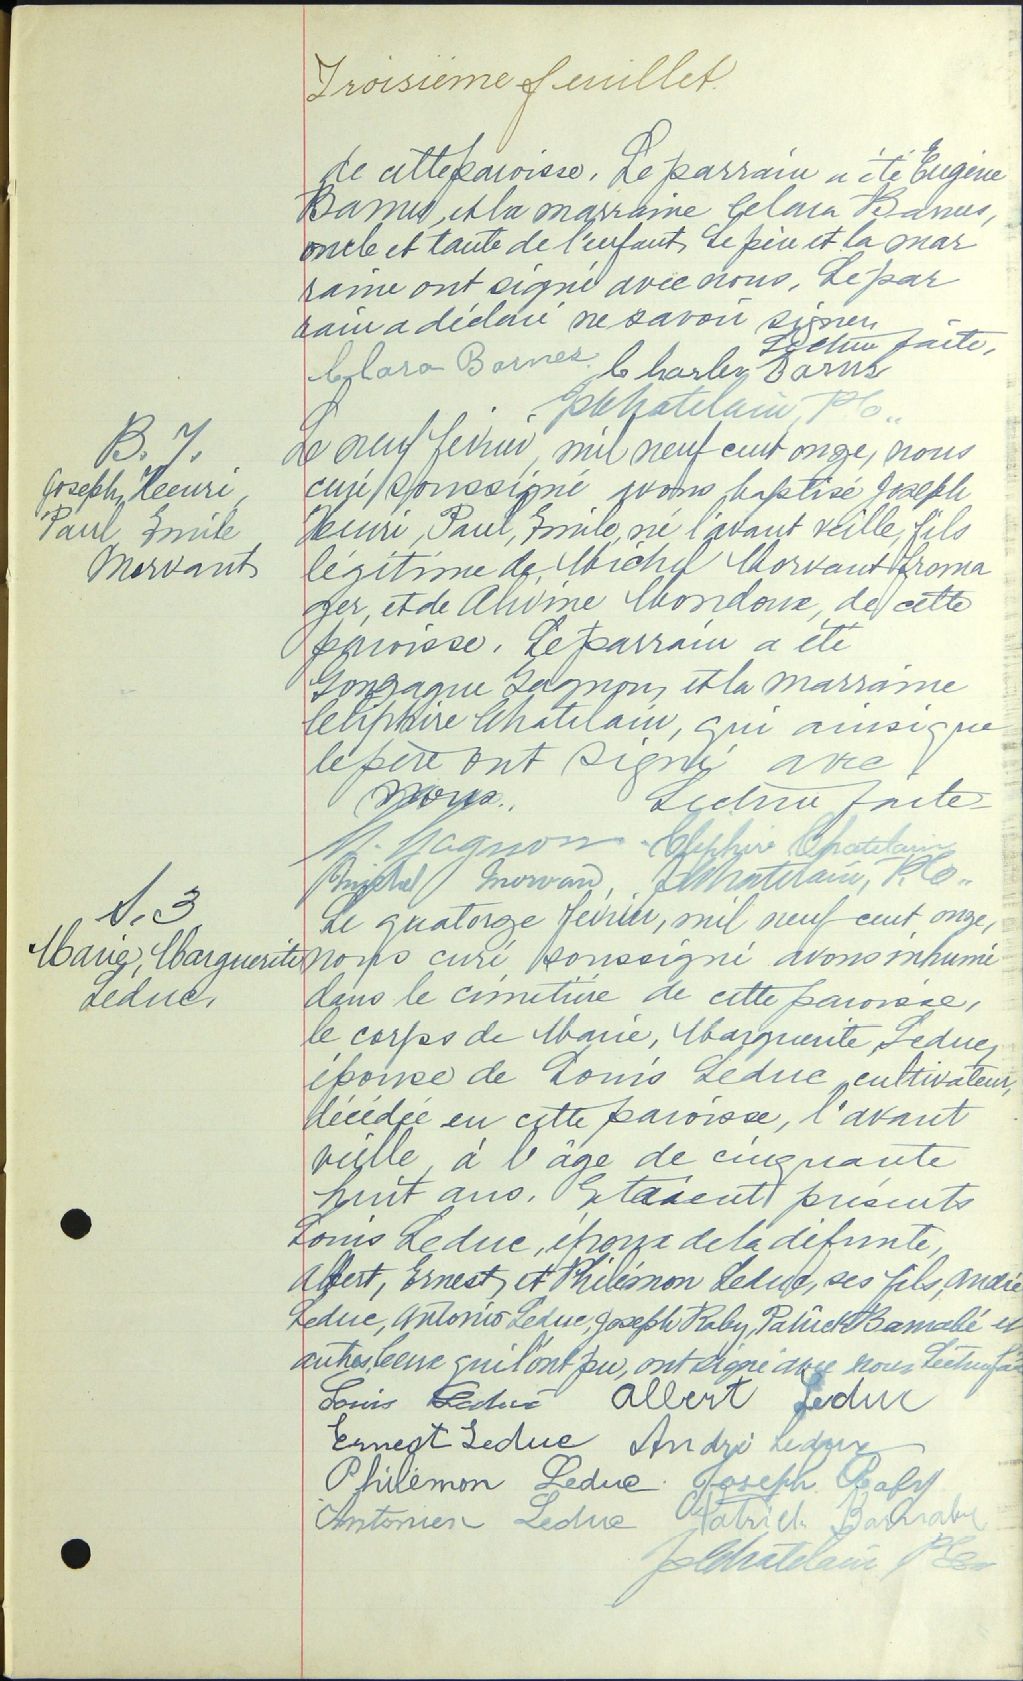 Troisième feuillet.
de cette paroisse. Le parrain a été Eugène
Barnes, et la marraine Clara Barnes,
oncle et tante de l'enfant. Le père et la mar
raine ont signé avec nous. Le par
rain a déclaré ne savoir signer.
Lecture faite.
Clara Barnes Charles Barns
Chatelain, Ptre
B. 7.
Joseph, Henri,
Paul, Emile
Morvant
Le neuf février, mil neuf cent onze, nous
curé soussigné avons baptisé Joseph
Henri, Paul, Emile, né l'avant veille, fils
légitime de Michel Morvant froma
ger, et de Alvine Mondoux, de cette
paroisse. Le parrain a été
Gonzague Gagnon, et la marraine
Céliphire Chatelain, qui ainsi que
le père ont signé avec
nous. Lecture faite
Gagnon Céliphire Chatelain
Michel Morvan, Chatelain, Ptre
S. 3
Marie, Marguerite
Leduc.
Le quatorze février, mil neuf cent onze,
nous curé soussigné avons inhumé
dans le cimetière de cette paroisse,
le corps de Marie, Marguerite Leduc,
épouse de Louis Leduc cultivateur,
décédée en cette paroisse, l'avant
veille, à l'âge de cinquante
huit ans. Etaient présents
Louis Leduc, époux de la défunte,
Albert, Ernest, et Philémon Leduc, ses fils, André
Leduc, Antonio Leduc, Joseph Raby, Patrick Barnabé et
autres. Ceux qui l'ont pu, ont signé avec nous. Lecture
Louis Leduc Albert Leduc
Ernest Leduc André Leduc
Philémon Leduc Joseph Raby
Leduc Patrick Barnabe
Chatelain Ptre